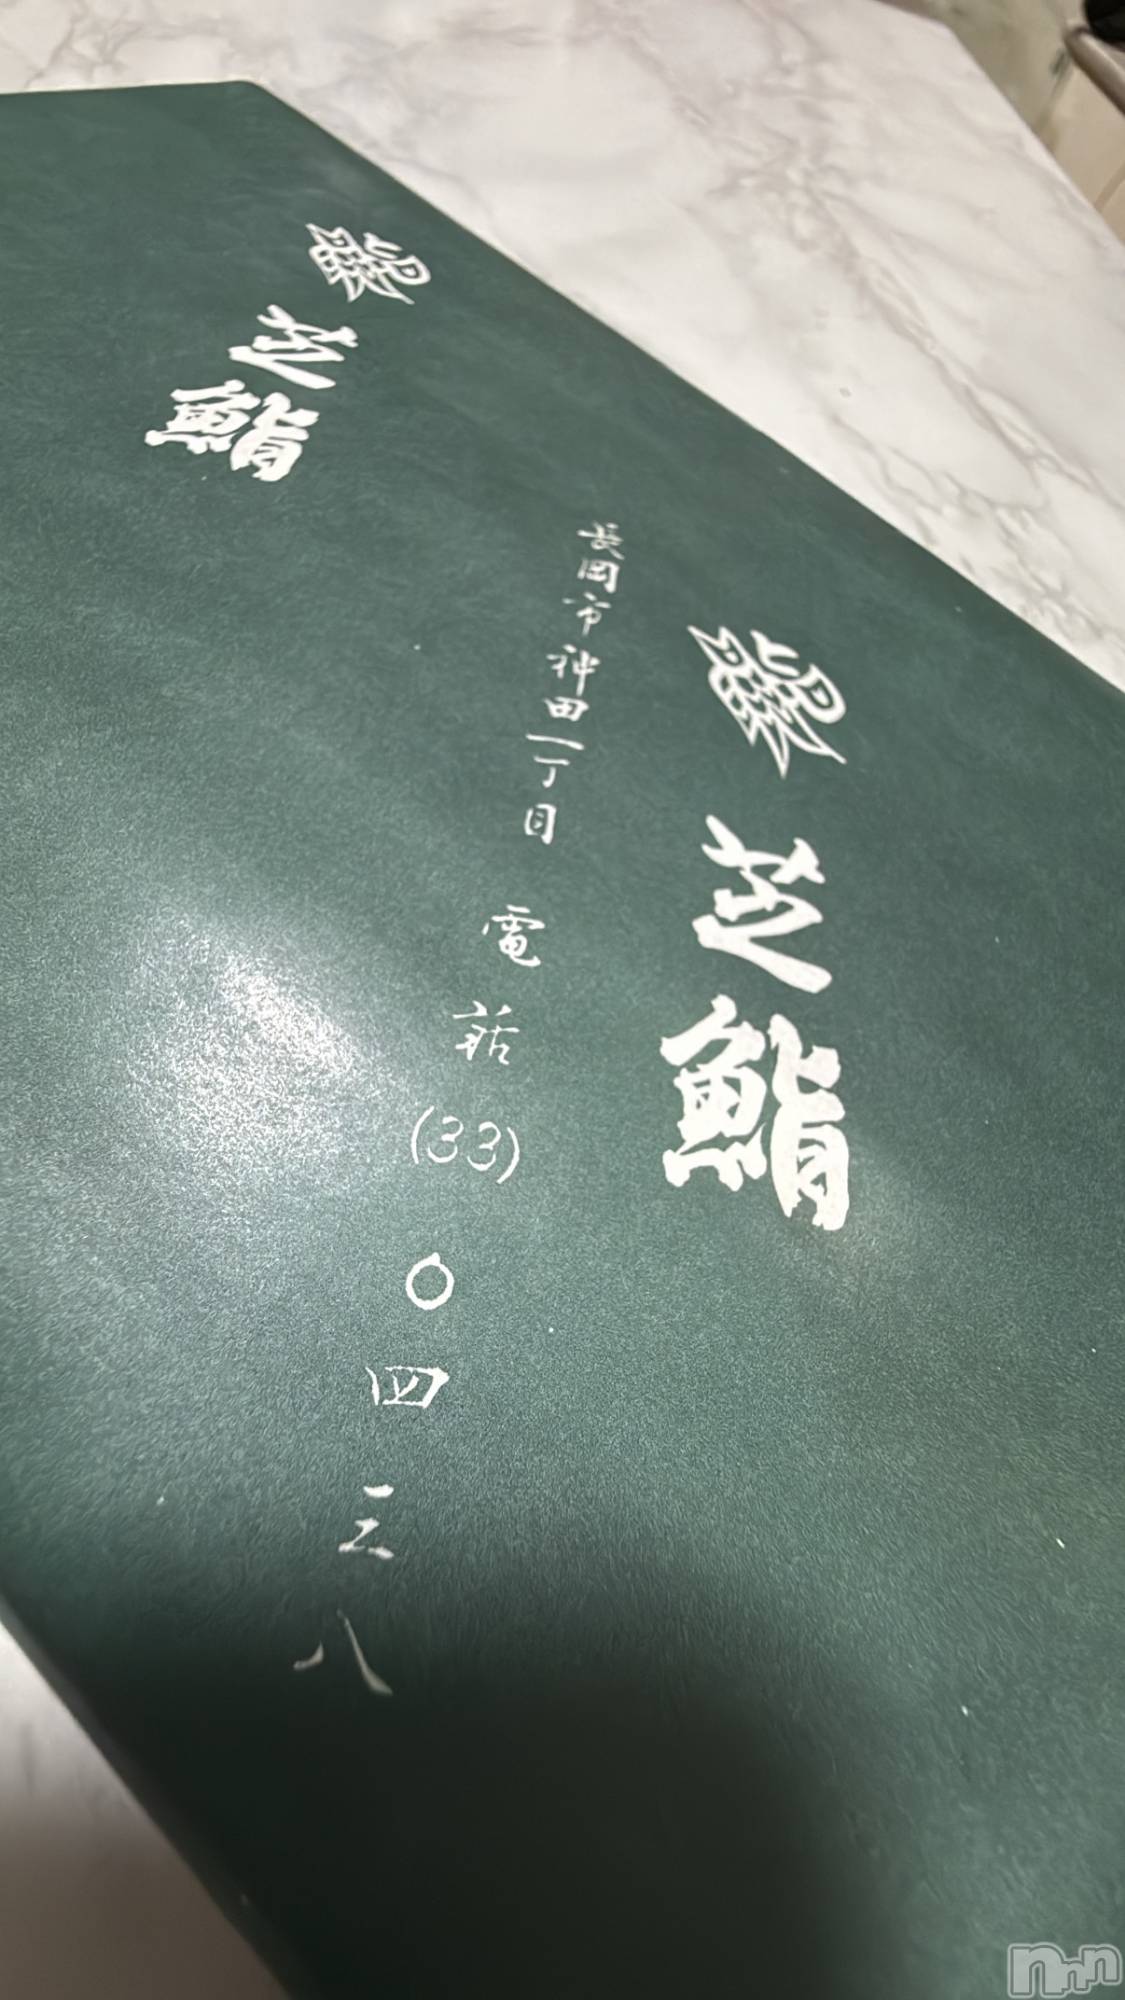 芝鮨
長岡市神田一丁目 電話(33)〇四三八
芝鮨
nnn